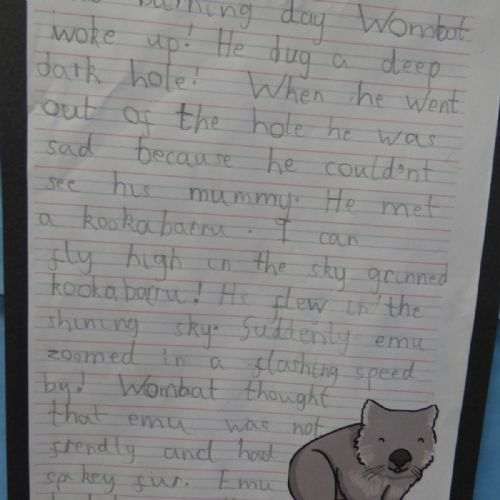 burning day Wombat
woke up! He dug a deep
dark hole! When he went
out of the hole he was
sad because he couldont
see his mummy. He met
a kookabarru. I can
fly high in the sky grinned
kookabarru! He flew in the
shining sky. Suddenly emu
zoomed in a flashing speed
by! Wombat thought
that emu was not
frendly and had
spakey fur. Emu